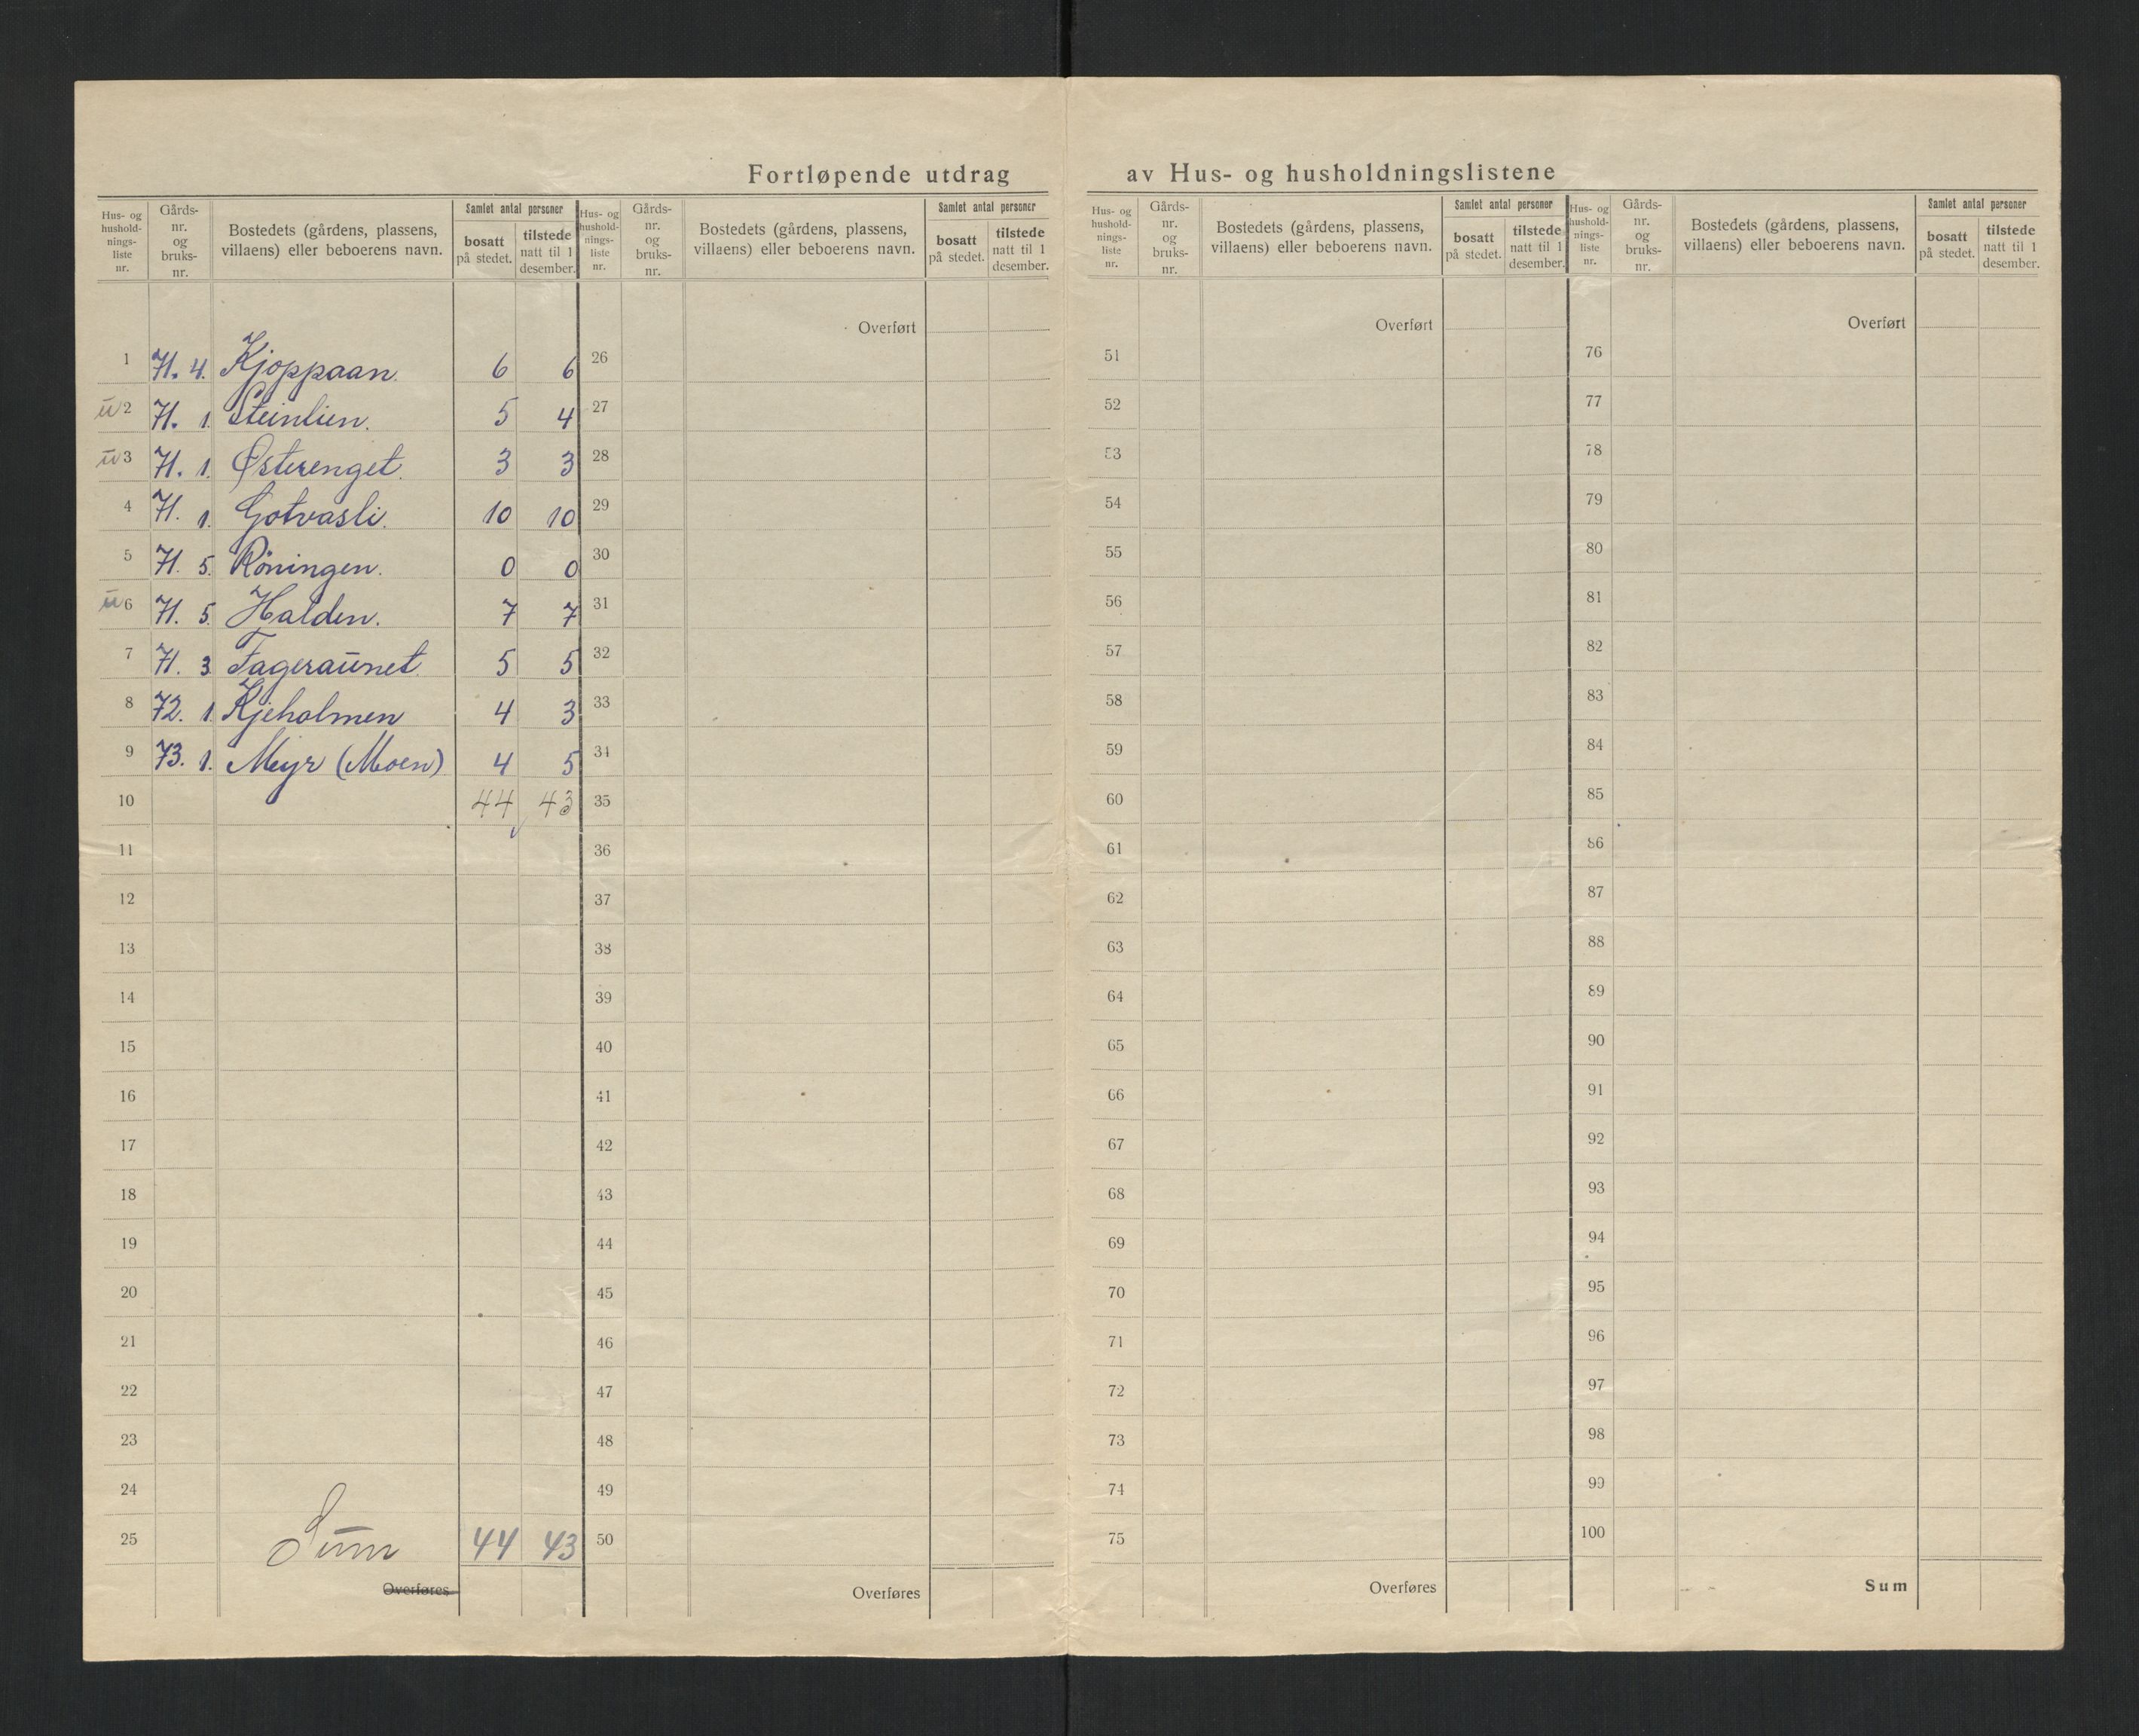 Fortløpende utdrag av Hus- og husholdningslistene
Hus- og hushold-nings-liste nr. Gårds-nr. og bruks-nr. Bostedets (gårdens, plassens, villaens) eller beboerens navn. Samlet antal personer bosatt på stedet. tilstede natt til 1 desember.
Overført
1 71. 4. Kjoppaan. 6 6
ū 2 71. 1. Steinlien. 5 4
ū 3 71. 1. Østerenget. 3 3
4 71. 1. Gotvasli. 10 10
5 71. 5. Röningen. 0 0
ū 6 71. 5. Halden. 7 7
7 71. 3. Fageraūnet. 5 5
8 72. 1. Kjeholmen 4 3
9 73. 1. Meyr (Moen) 4 5
10 44 43
11
12
13
14
15
16
17
18
19
20
21
22
23
24
25 Sūm 44 43
Overføres
Hus- og hushold-nings-liste nr. Gårds-nr. og bruks-nr. Bostedets (gårdens, plassens, villaens) eller beboerens navn. Samlet antal personer bosatt på stedet. tilstede natt til 1 desember.
Overført
26
27
28
29
30
31
32
33
34
35
36
37
38
39
40
41
42
43
44
45
46
47
48
49
50
Overføres
Hus- og hushold-nings-liste nr. Gårds-nr. og bruks-nr. Bostedets (gårdens, plassens, villaens) eller beboerens navn. Samlet antal personer bosatt på stedet. tilstede natt til 1 desember.
Overført
51
52
53
54
55
56
57
58
59
60
61
62
63
64
65
66
67
68
69
70
71
72
73
74
75
Overføres
Hus- og hushold-nings-liste nr. Gårds-nr. og bruks-nr. Bostedets (gårdens, plassens, villaens) eller beboerens navn. Samlet antal personer bosatt på stedet. tilstede natt til 1 desember.
Overført
76
77
78
79
80
81
82
83
84
85
86
87
88
89
90
91
92
93
94
95
96
97
98
99
100
Sum